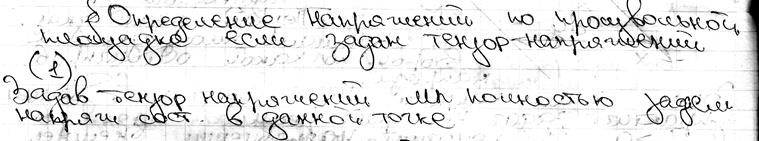 Определение напряжений по произвольной
площадке если задан тензор-напряжений
(1)
Задав тензор напряжений мы полностью задаем
напряж сост. в данной точке